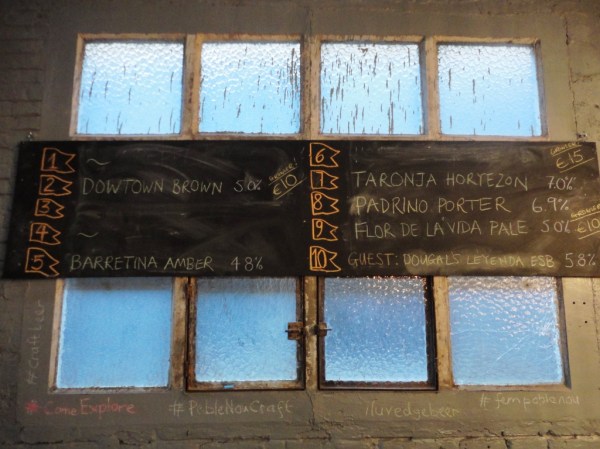 1 ~
2 DOWTOWN BROWN 5.0% €10
3
4 ~
5 BARRETINA AMBER 4.8%
6 €15
7 TARONJA HORYEZON 7.0%
8 PADRINO PORTER 6.9%
9 FLOR DE LA VIDA PALE 5.0% €10
10 GUEST: DOUGALS LEYENDA ESB 5.8%
#craftbeer
#ComeExplore
#PobleNouCraft
iluvedgebeer
#fempoblenou